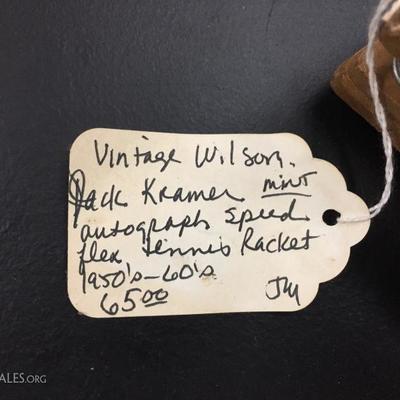 Vintage Wilson.
Jack Kramer mint
autograph speed
flex tennis Racket
1950's-60's
6500 JM
ALES.ORG